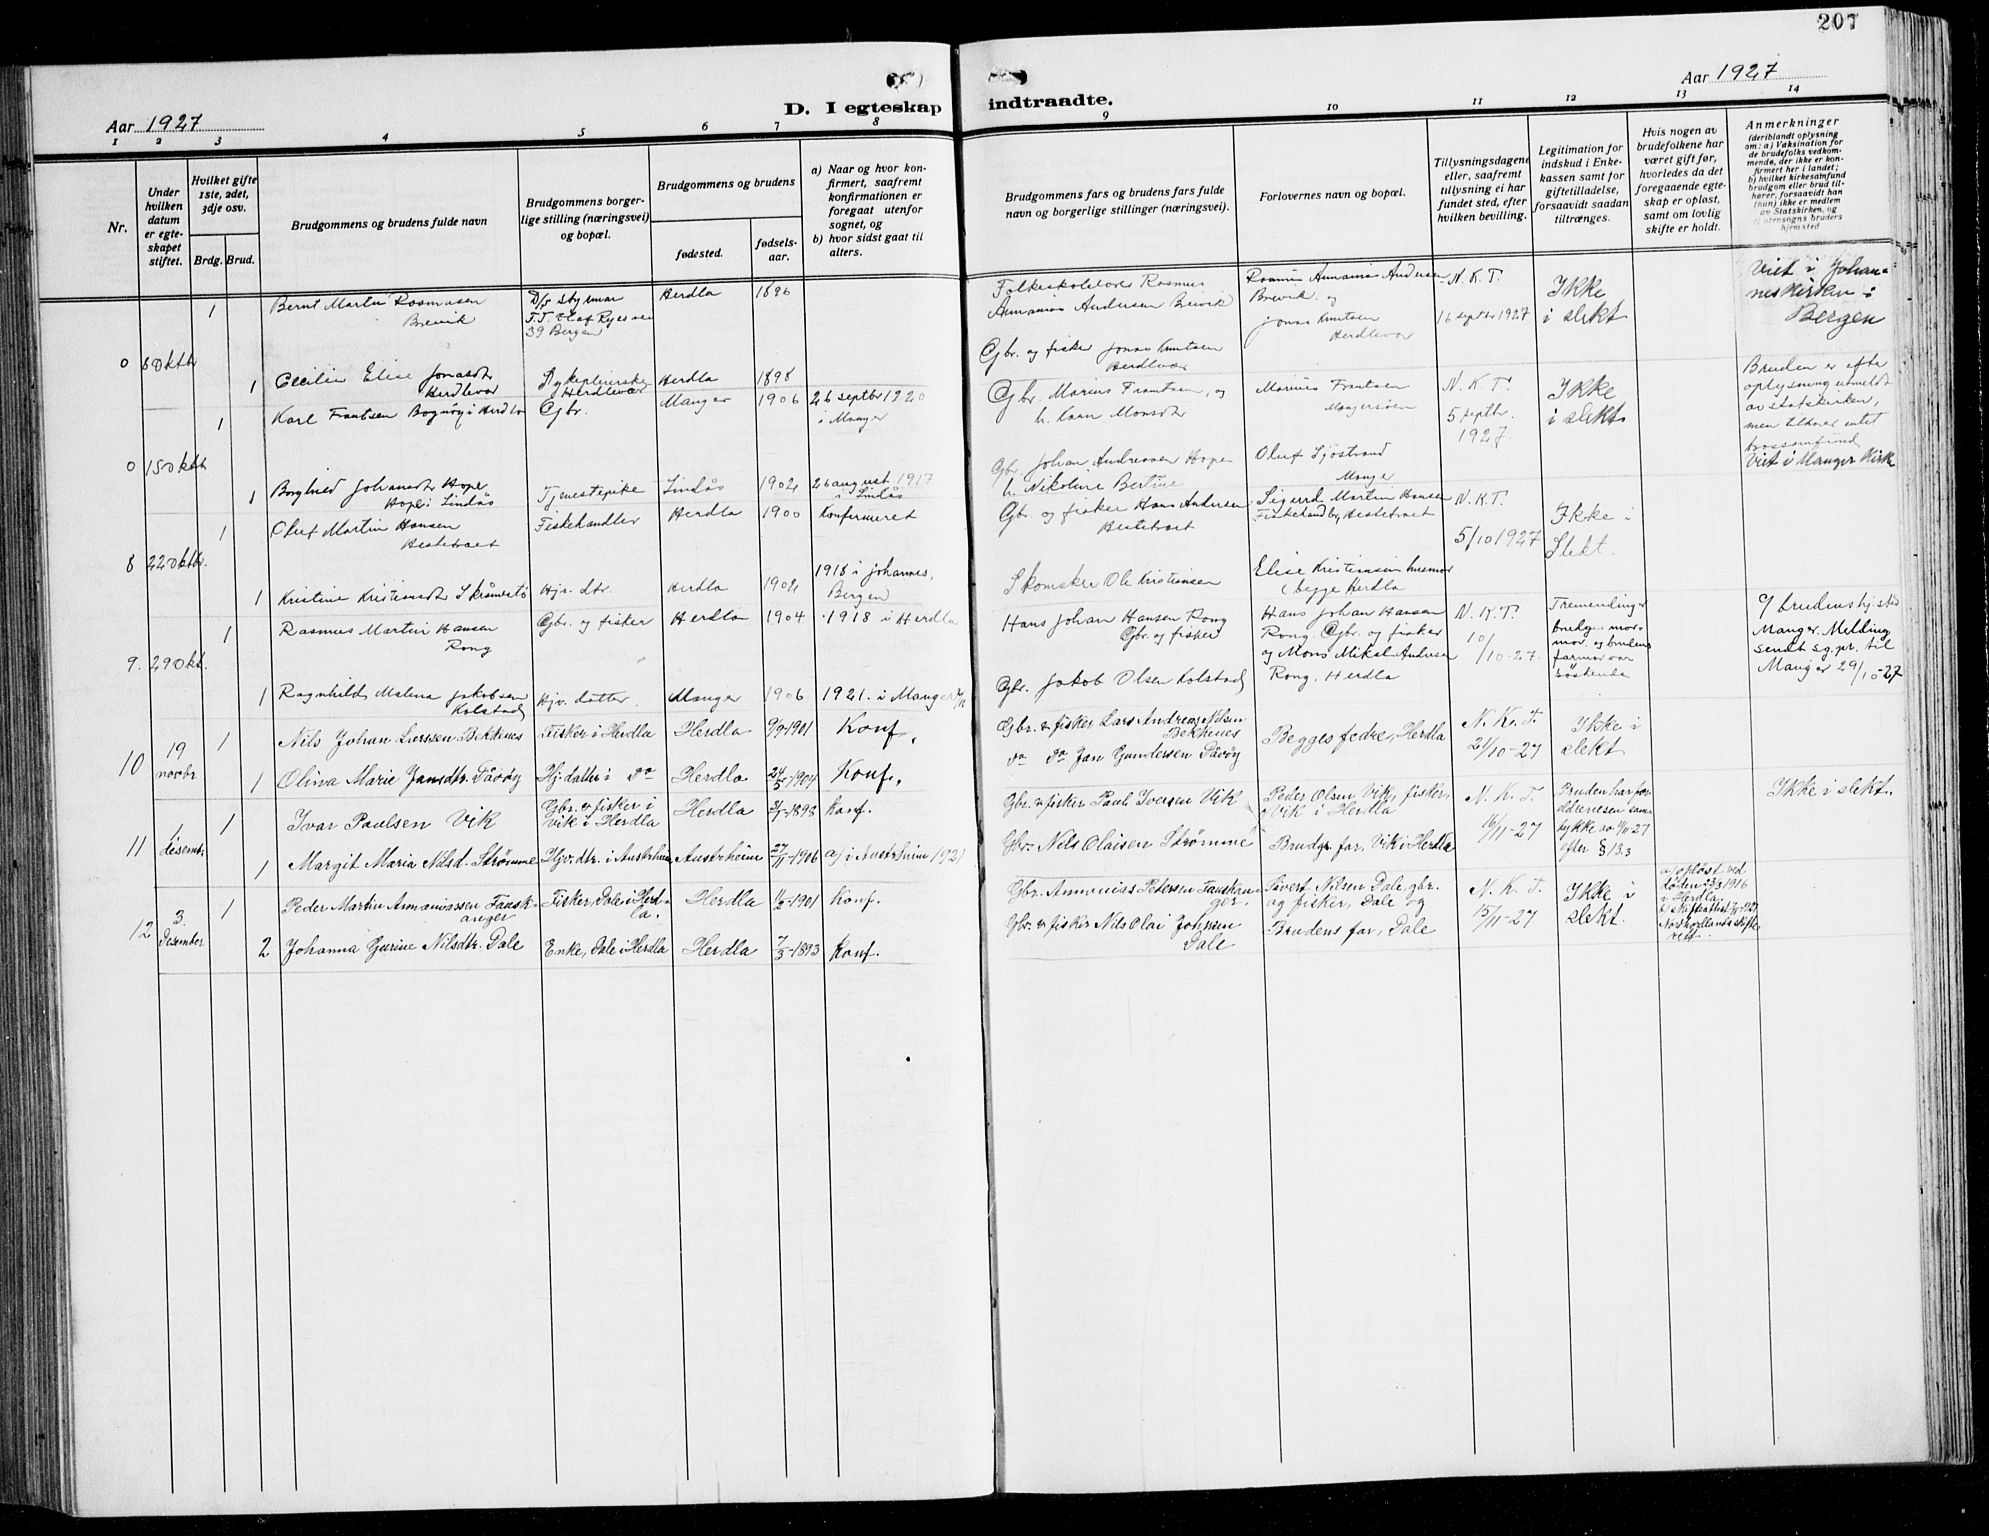 207
Aar 1927
Aar 1927
D. I egteskap indtraadte.
1 2 3 4 5 6 7 8 9 10 11 12 13 14
Nr.
Under hvilken datum er egteskapet stiftet.
Hvilket gifte 1ste, 2det, 3dje osv.
Brdg. Brud.
Brudgommens og brudens fulde navn
Brudgommens borgerlige stilling (næringsvei) og bopæl.
Brudgommens og brudens
fødested.
fødselsaar.
a) Naar og hvor konfirmert, saafremt konfirmationen er foregaat utenfor sognet, og
b) hvor sidst gaat til alters.
Brudgommens fars og brudens fars fulde navn og borgerlige stillinger (næringsvei).
Forlovernes navn og bopæl.
Tillysningsdagene eller, saafremt tillysning ei har fundet sted, efter hvilken bevilling.
Legitimation for indskud i Enkekassen samt for giftetilladelse, forsaavidt saadan tiltrænges.
Hvis nogen av brudefolkene har været gift før, hvorledes da det foregaaende egteskap er opløst, samt om lovlig skifte er holdt.
Anmerkninger
(deriblandt oplysning om: a) Vaksination for de brudefolks vedkommende, der ikke er konfirmert her i landet; b) hvilket kirkesamfund brudgom eller brud tilhører, forsaavidt han (hun) ikke er medlem av Statskirken, og c) utensogns bruders hjemsted
1 Bernt Martin Rasmusen Brevik
39 Bergen
Herdla 1896
Folkeskolelærer Rasmus Annanias Andersen Brevik
Rasmus Annanias Andersen Brevik og Jonas Knutsen Herdlevær
N. K. T. 16 septbr 1927
Ikke i slekt
Viet i Johanneskirken i Bergen
6 oktb
1 Cecilie Elise Jonasdtr Herdlevær
Sykepleierske Herdlevær
Herdla 1898
Gbr. og fisker Jonas Knutsen Herdlevær
1 Karl Frantsen Bognøy i Herdla
Gbr.
Manger 1906
26 septbr 1920 i Manger
Gbr. Marius Frantsen, og h. Karn Monsdtr
Marius Frantsen Mangersøen
N. K. T. 5 septbr. 1927.
Ikke i slekt
Bruden er efter oplysning utmeldt av statskirken, men tilhører intet trossamfund
Viet i Manger Kirke
15 oktb
1 Borghild Johansdtr Hope Hope i Lindås
Tjenestepike
Lindås 1902
26 august 1917 i Lindås
Gbr. Johan Andreassen Hope h. Nikoline Bertine
Oluf Sjøstrand Manger
1 Oluf Martin Hansen Hestetræet
Fiskehandler
Herdla 1900 Konfirmeret
Gbr. og fisker Hans Andersen Hestetræet
Sigurd Martin Hansen Fiskehandler, Hestetræet
N. K. T. 5/10 1927
Ikke i Slekt.
8 22 oktbr.
1 Kristine Kristiansdtr Skåmestø
Hjv. dtr. Herdla 1902
1918 i Johannes, Bergen
Skomaker Ole Kristiansen
Elise Kristiansen husmor (begge Herdla
1 Rasmus Martin Hansen Rong
Gbr. og fisker Herdla 1904 1918 i Herdla
Hans Johan Hansen Rong Gbr. og fisker
Hans Johan Hansen Rong. Gbr. og fisker og Mons Mikal Andersen Rong. Herdla
N. K. T. 10/10-27.
Tremendinger brudg. mormor og brudens farmor var søskende
I brudens hj. sted Manger. Melding sendt sg.pr. til Manger 29/10-27
9. 29 okt.
1 Ragnhild Malena Jakobsen Kolstad
Hjv. datter. Manger 1906 1921. i Manger
Gbr. Jakob Olsen Kolstad
10 19 novbr
1 Nils Johan Larssen Bekkenes
Fisker i Herdla Herdla 9/9-1901 Konf.
Gbr. & fisker Lars Andreas Nilsen Bekkenes
do do Jan Gundersen Dåvøy
Begges fedre, Herdla
N. K. T. 21/10-27
Ikke i slekt
1 Oliva Marie Jansdtr. Dåvøy
Hj. datter i do Herdla 24/5-1904 Konf.
11 1 desembr
1 Ivar Paulsen Vik
Gbr. & fisker i Vik i Herdla
Herdla 3/1-1893 Konf.
Gbr. & fisker Paul Iversen Vik
Gbr. Nils Olaisen Strømme
Peder Olsen Vik, fisker, Vik i Herdla
Brudgr. far, Vik i Herdla
N. K. T. 16/11-27
Bruden har foreldrenes samtykke av 4/11-27 efter § 13.3
Ikke i slekt.
1 Margit Maria Nilsd. Strømme
Hjv. dtr. i Austrheim Austrheim 27/11-1906 a) i Austrheim 1921
12 3. Desember
1 Peder Martin Annaniassen Fauskanger
Fisker, Dale i Herdla. Herdla 11/3-1901 Konf.
Gbr. Annanias Pedersen Fauskanger.
Gbr. & fisker Nils Olai Johnsen Dale
Sivert Nilsen Dale, gbr. og fisker, Dale og Brudens far, Dale
N. K. T. 15/11-27
Ikke i slekt.
a) opløst ved døden 23/3 1916 i Herdla
2 Johanna Gurine Nilsdtr. Dale
Enke, Dale i Herdla Herdla 7/3-1893 Konf.